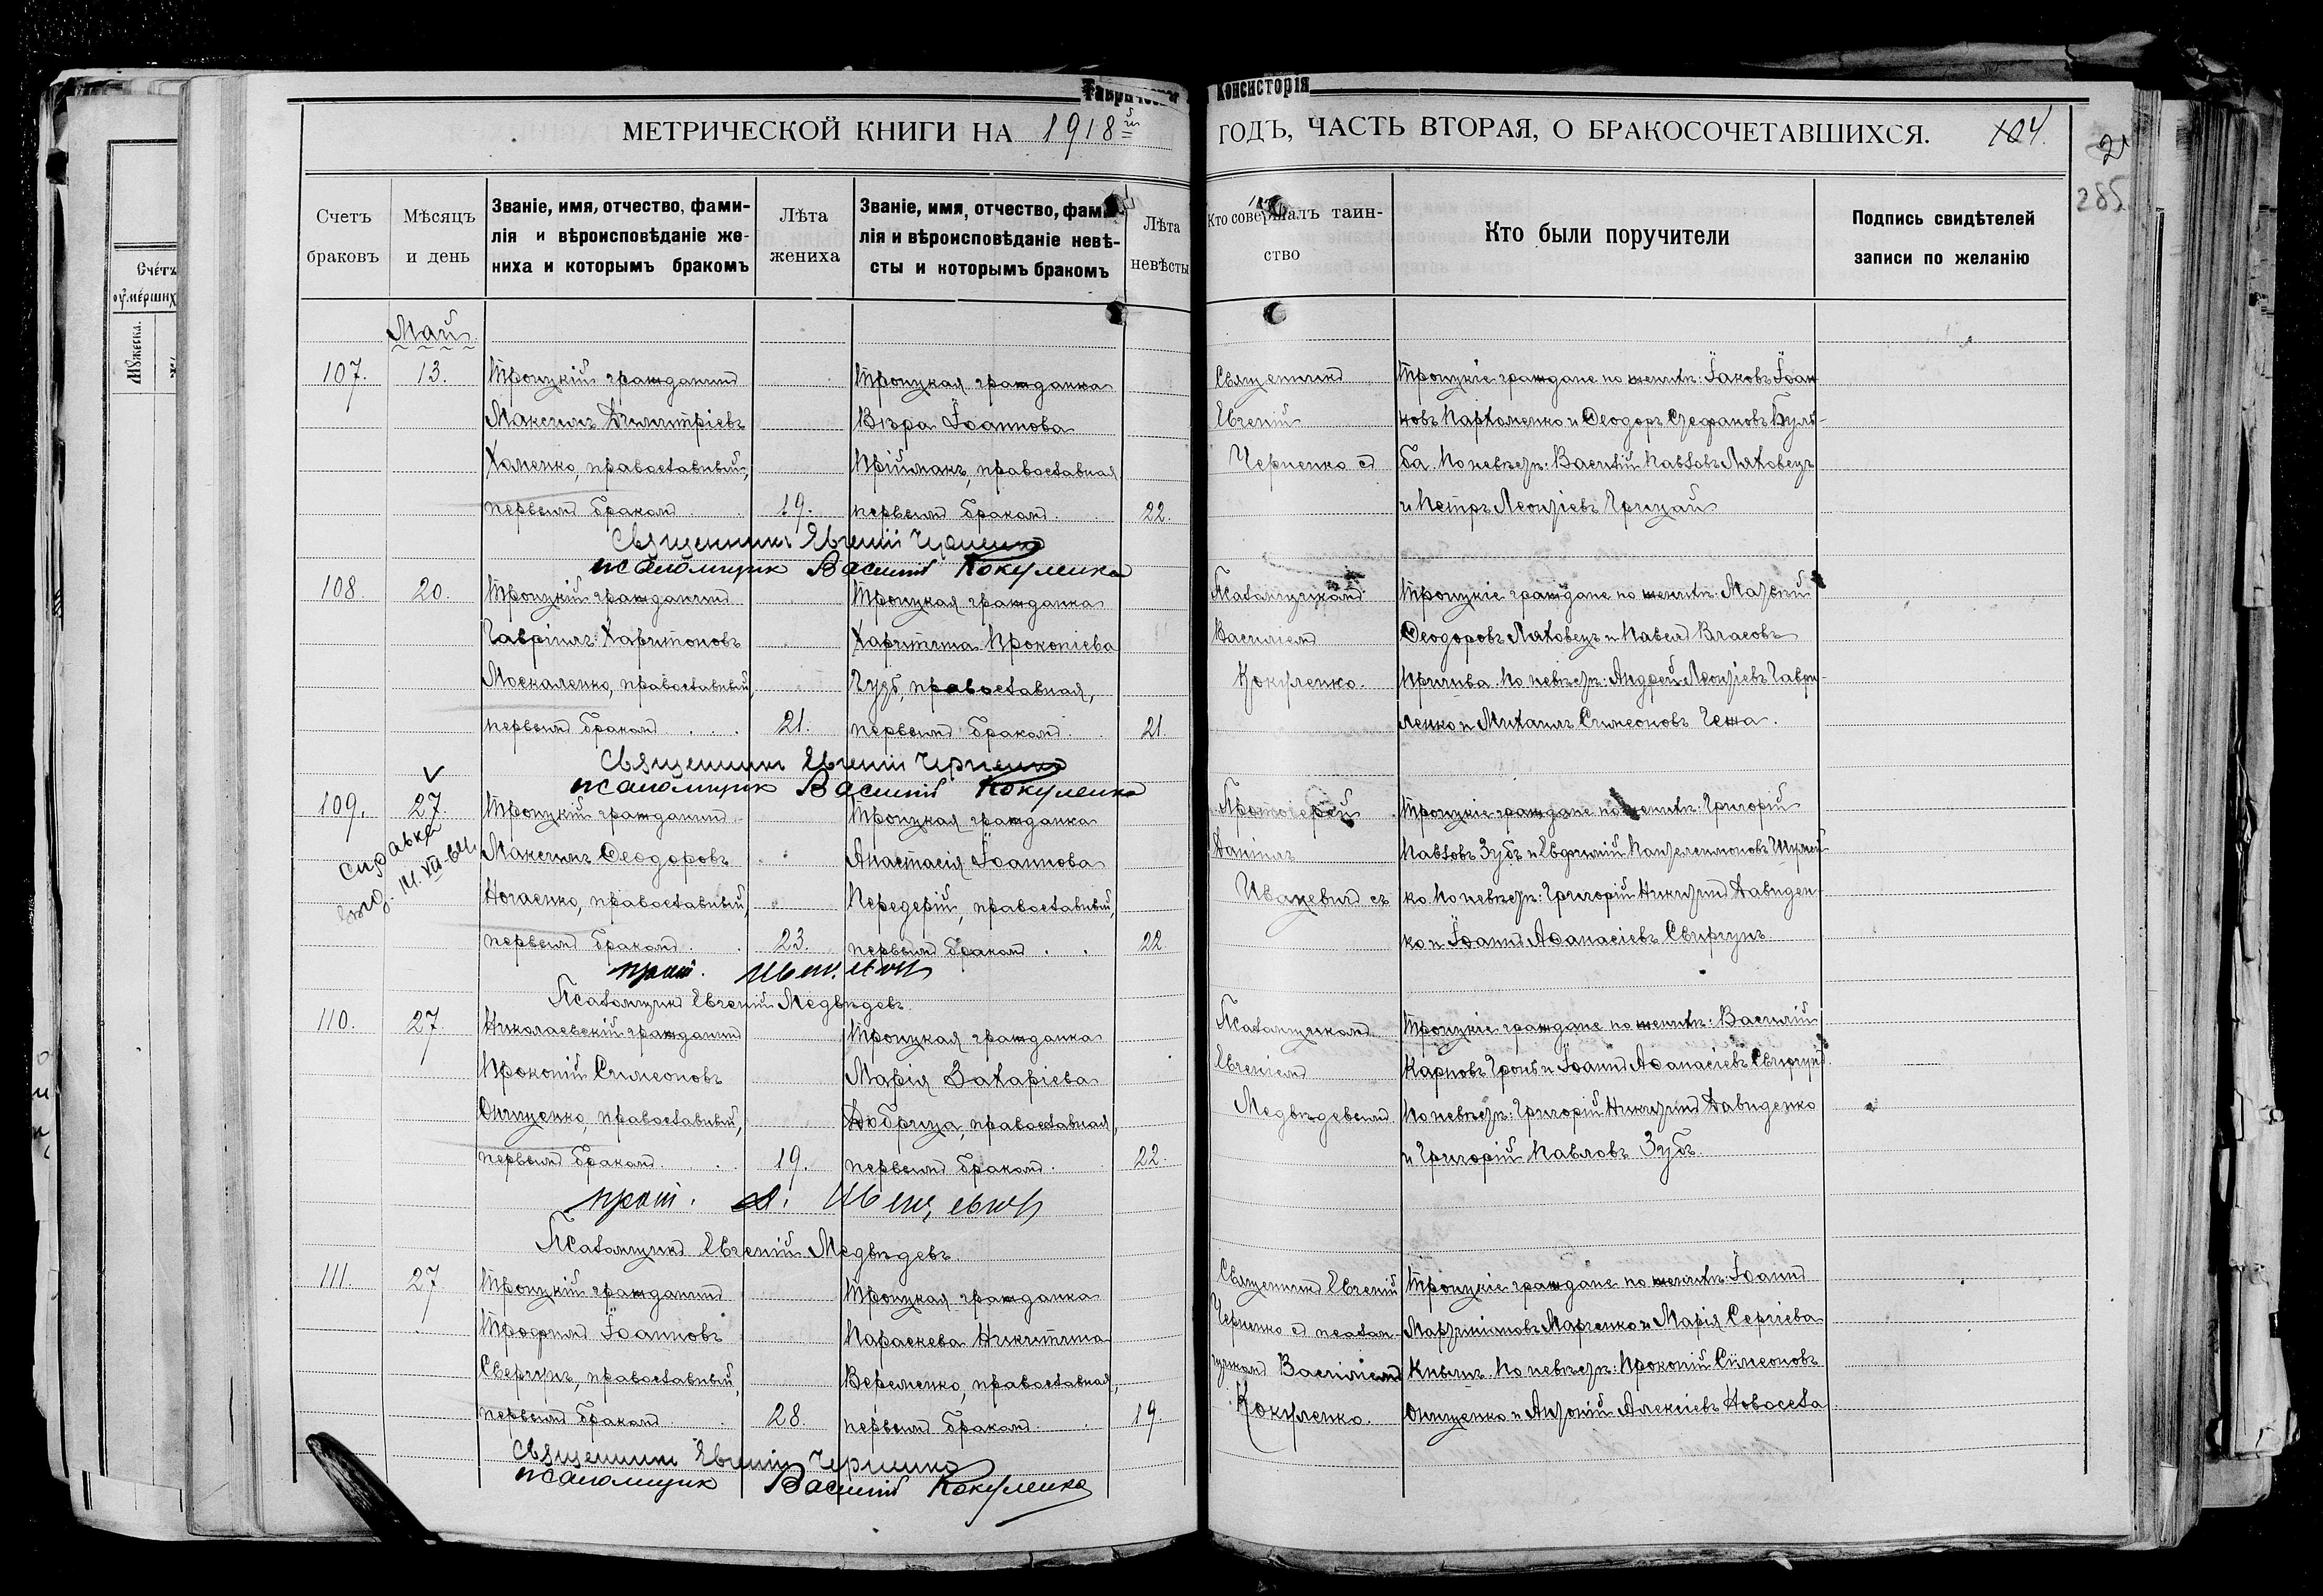 Консисторія
МЕТРИЧЕСКОЙ КНИГИ НА 1918й ГОДЪ, ЧАСТЬ ВТОРАЯ, О БРАКОСОЧЕТАВШИХСЯ. 104.
285
Счетъ браковъ
Мѣсяцъ и день
Званіе, имя, отчество, фами-
лія и вѣроисповѣданіе же-
ниха и которымъ бракомъ
Лѣта жениха
Званіе, имя, отчество, фами-
лія и вѣроисповѣданіе невѣ-
сты и которымъ бракомъ
Лѣта невѣсты
Кто совершалъ таин-
ство
Кто были поручители
Подпись свидѣтелей
записи по желанію
Счетъ
оумершихъ
Май
107. 13.
Троицкій гражданинъ
Максимъ Димитріевъ
Хоменко, православный,
первымъ бракомъ 19.
Троицкая гражданка
Вѣра Іоаннова
Пріймакъ, православная
первымъ бракомъ. 22.
Священникъ
Евгеній
Черненко съ
Троицкіе граждане по женихѣ: Іаковъ Іоан
новъ Пархоменко и Ѳеодоръ Стефановъ Буль-
ба. По невѣстѣ: Василій Павловъ Ляховецъ
и Петръ Леонтіевъ Грицай
Священникъ Евгеній Черненко
псаломщик Василий Кокуленко
108. 20.
Троицкій гражданинъ
Гавріилъ Харитоновъ
Москаленко, православный,
первымъ бракомъ 21.
Троицкая гражданка
Харитина Прокопіева
Гудь, православная,
первымъ бракомъ. 21.
Псаломщикомъ
Василіемъ
Кокуленко.
Троицкіе граждане по женихѣ:
Ѳеодоровъ Ляховецъ и Павелъ Власовъ
По невѣстѣ: Андрей Леонтіевъ Гаври-
ленко и Михаилъ Симеоновъ
Священникъ Евгеній Черненко
псаломщик Василий Кокуленко
109. 27
Троицкій гражданинъ
Максимъ Ѳеодоровъ
Ногаенко, православный,
первымъ бракомъ. 23.
Троицкая гражданка
Анастасія Іоаннова
Передерій, православный,
первымъ бракомъ. 22.
Протоіерей
Даніилъ
Иваневичъ съ
Троицкіе граждане по женихѣ: Григорій
Павловъ Зубъ и Евфимій Пантелеимоновъ
ко. По невѣстѣ: Григорій Никитинъ Давиден-
ко и Іоаннъ Аѳанасіевъ Свиргунъ.
прот.
Псаломщикъ Евгеній Медвѣдевъ.
110. 27
Николаевскій гражданинъ
Прокопій Симеоновъ
Онищенко, православный,
первымъ бракомъ. 19.
Троицкая гражданка
Марія Захаріева
Добрица, православная,
первымъ бракомъ. 22.
Псаломщикомъ
Евгеніемъ
Медвѣдевымъ
Троицкіе граждане по женихѣ: Василій
Карповъ и Іоаннъ Аѳанасіевъ Свиргунъ.
По невѣстѣ: Григорій Никитинъ Давиденко
и Григорій Павловъ Зубъ.
прот. Д.
Псаломщикъ Евгеній Медвѣдевъ.
111. 27
Троицкій гражданинъ
Трофимъ Іоанновъ
Свергунъ, православный,
первымъ бракомъ 28.
Троицкая гражданка
Параскева Никитина
Веременко, православная,
первымъ бракомъ. 19
Священникъ Евгеній
Черненко съ псалом-
щикомъ Василіемъ
Кокуленко.
Троицкіе граждане по женихѣ: Іоаннъ
Мартиніановъ Марченко и Марія Сергіева
По невѣстѣ: Прокопій Симеоновъ
Онищенко и Антоній Алексіевъ Новосела
Священникъ Евгеній Черненко
псаломщик Василий Кокуленко